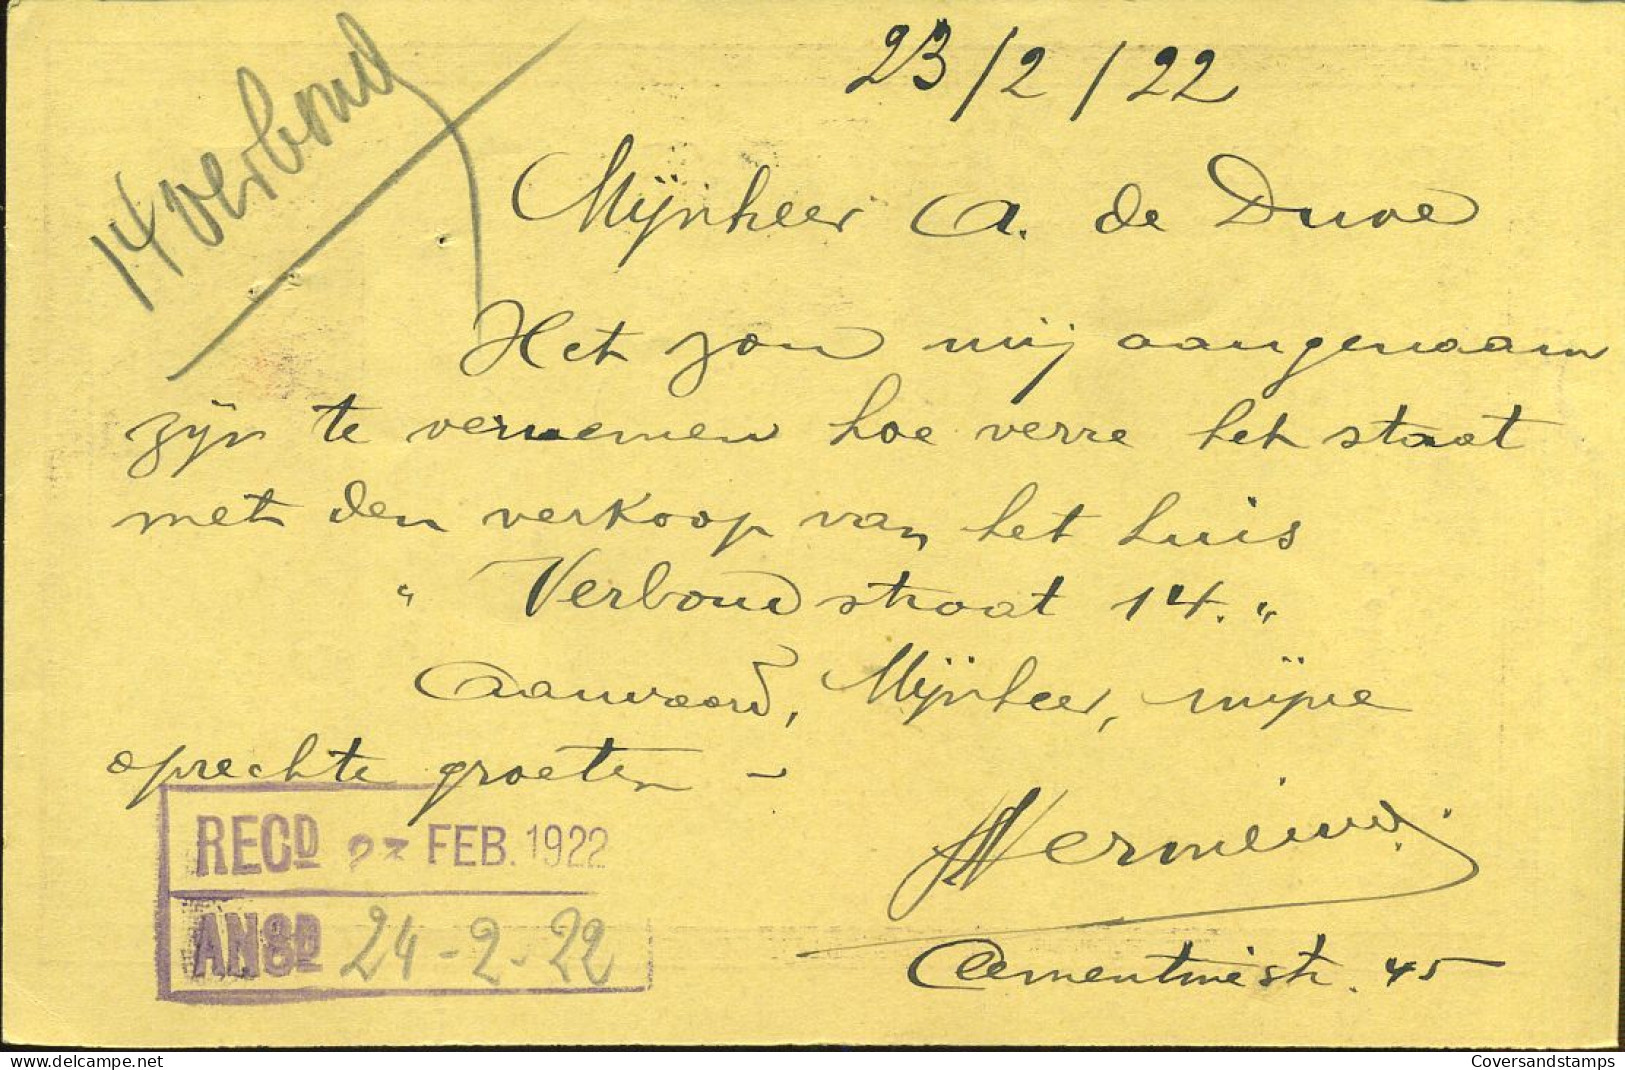 14 Verbond
23/2/22
Mijnheer A. de Duve
Het zou mij aangenaam
zijn te vernemen hoe verre het staat
met den verkoop van het huis
" Verbondstraat 14. "
Aanvaard, Mijnheer, mijne
oprechte groeten –
RECD 23 FEB. 1922
ANSD 24-2-22
Clementinestr. 45
delcampe.net
Coversandstamps